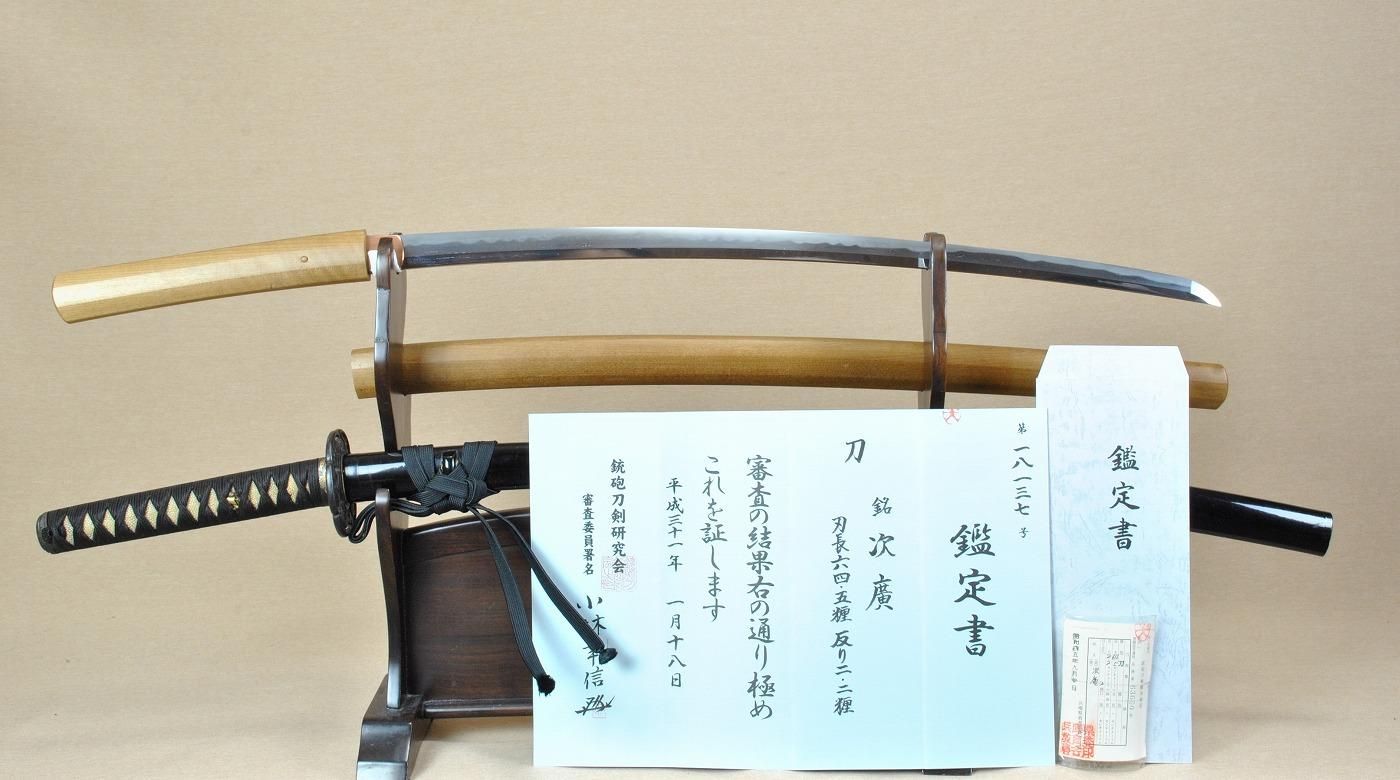 第一八一三七号
鑑定書
刀
銘 次廣
刃長六四・五糎 反り二・二糎
審査の結果右の通り極め
これを証します
平成三十一年 一月十八日
銃砲刀剣研究会
審査委員署名
鑑定書
刀